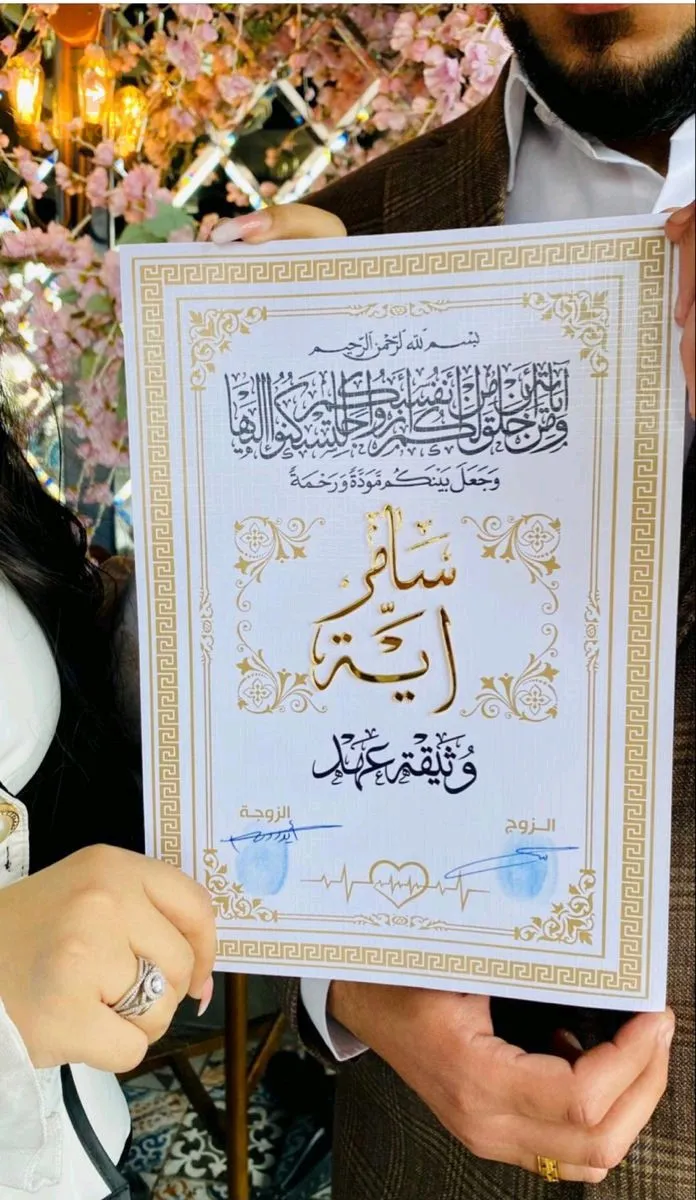 بسم الله الرحمن الرحيم
ومن آياته أن خلق لكم من أنفسكم أزواجا لتسكنوا إليها
وَجَعَلَ بَيْنَكُم مَّوَدَّةً وَرَحْمَةً
سامر
اية
وثيقة عهد
الزوج الزوجة